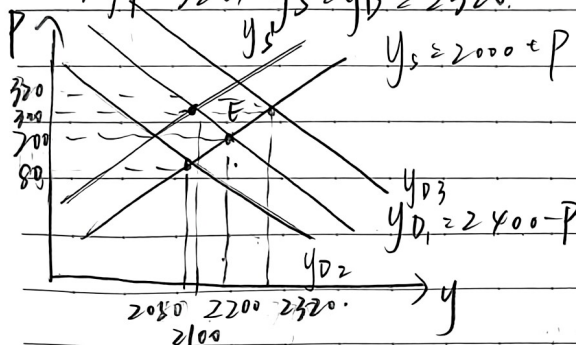 yS = yD = 2320.
P
yS'
yS = 2000 + P
320
300
200
80
E
yD3
yD1 = 2400 - P
yD2
y
2080 2200 2320.
2100